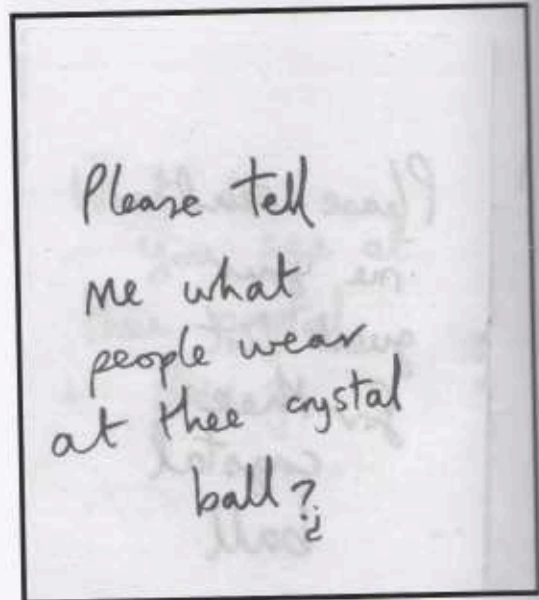 Please tell
me what
people wear
at thee crystal
ball?